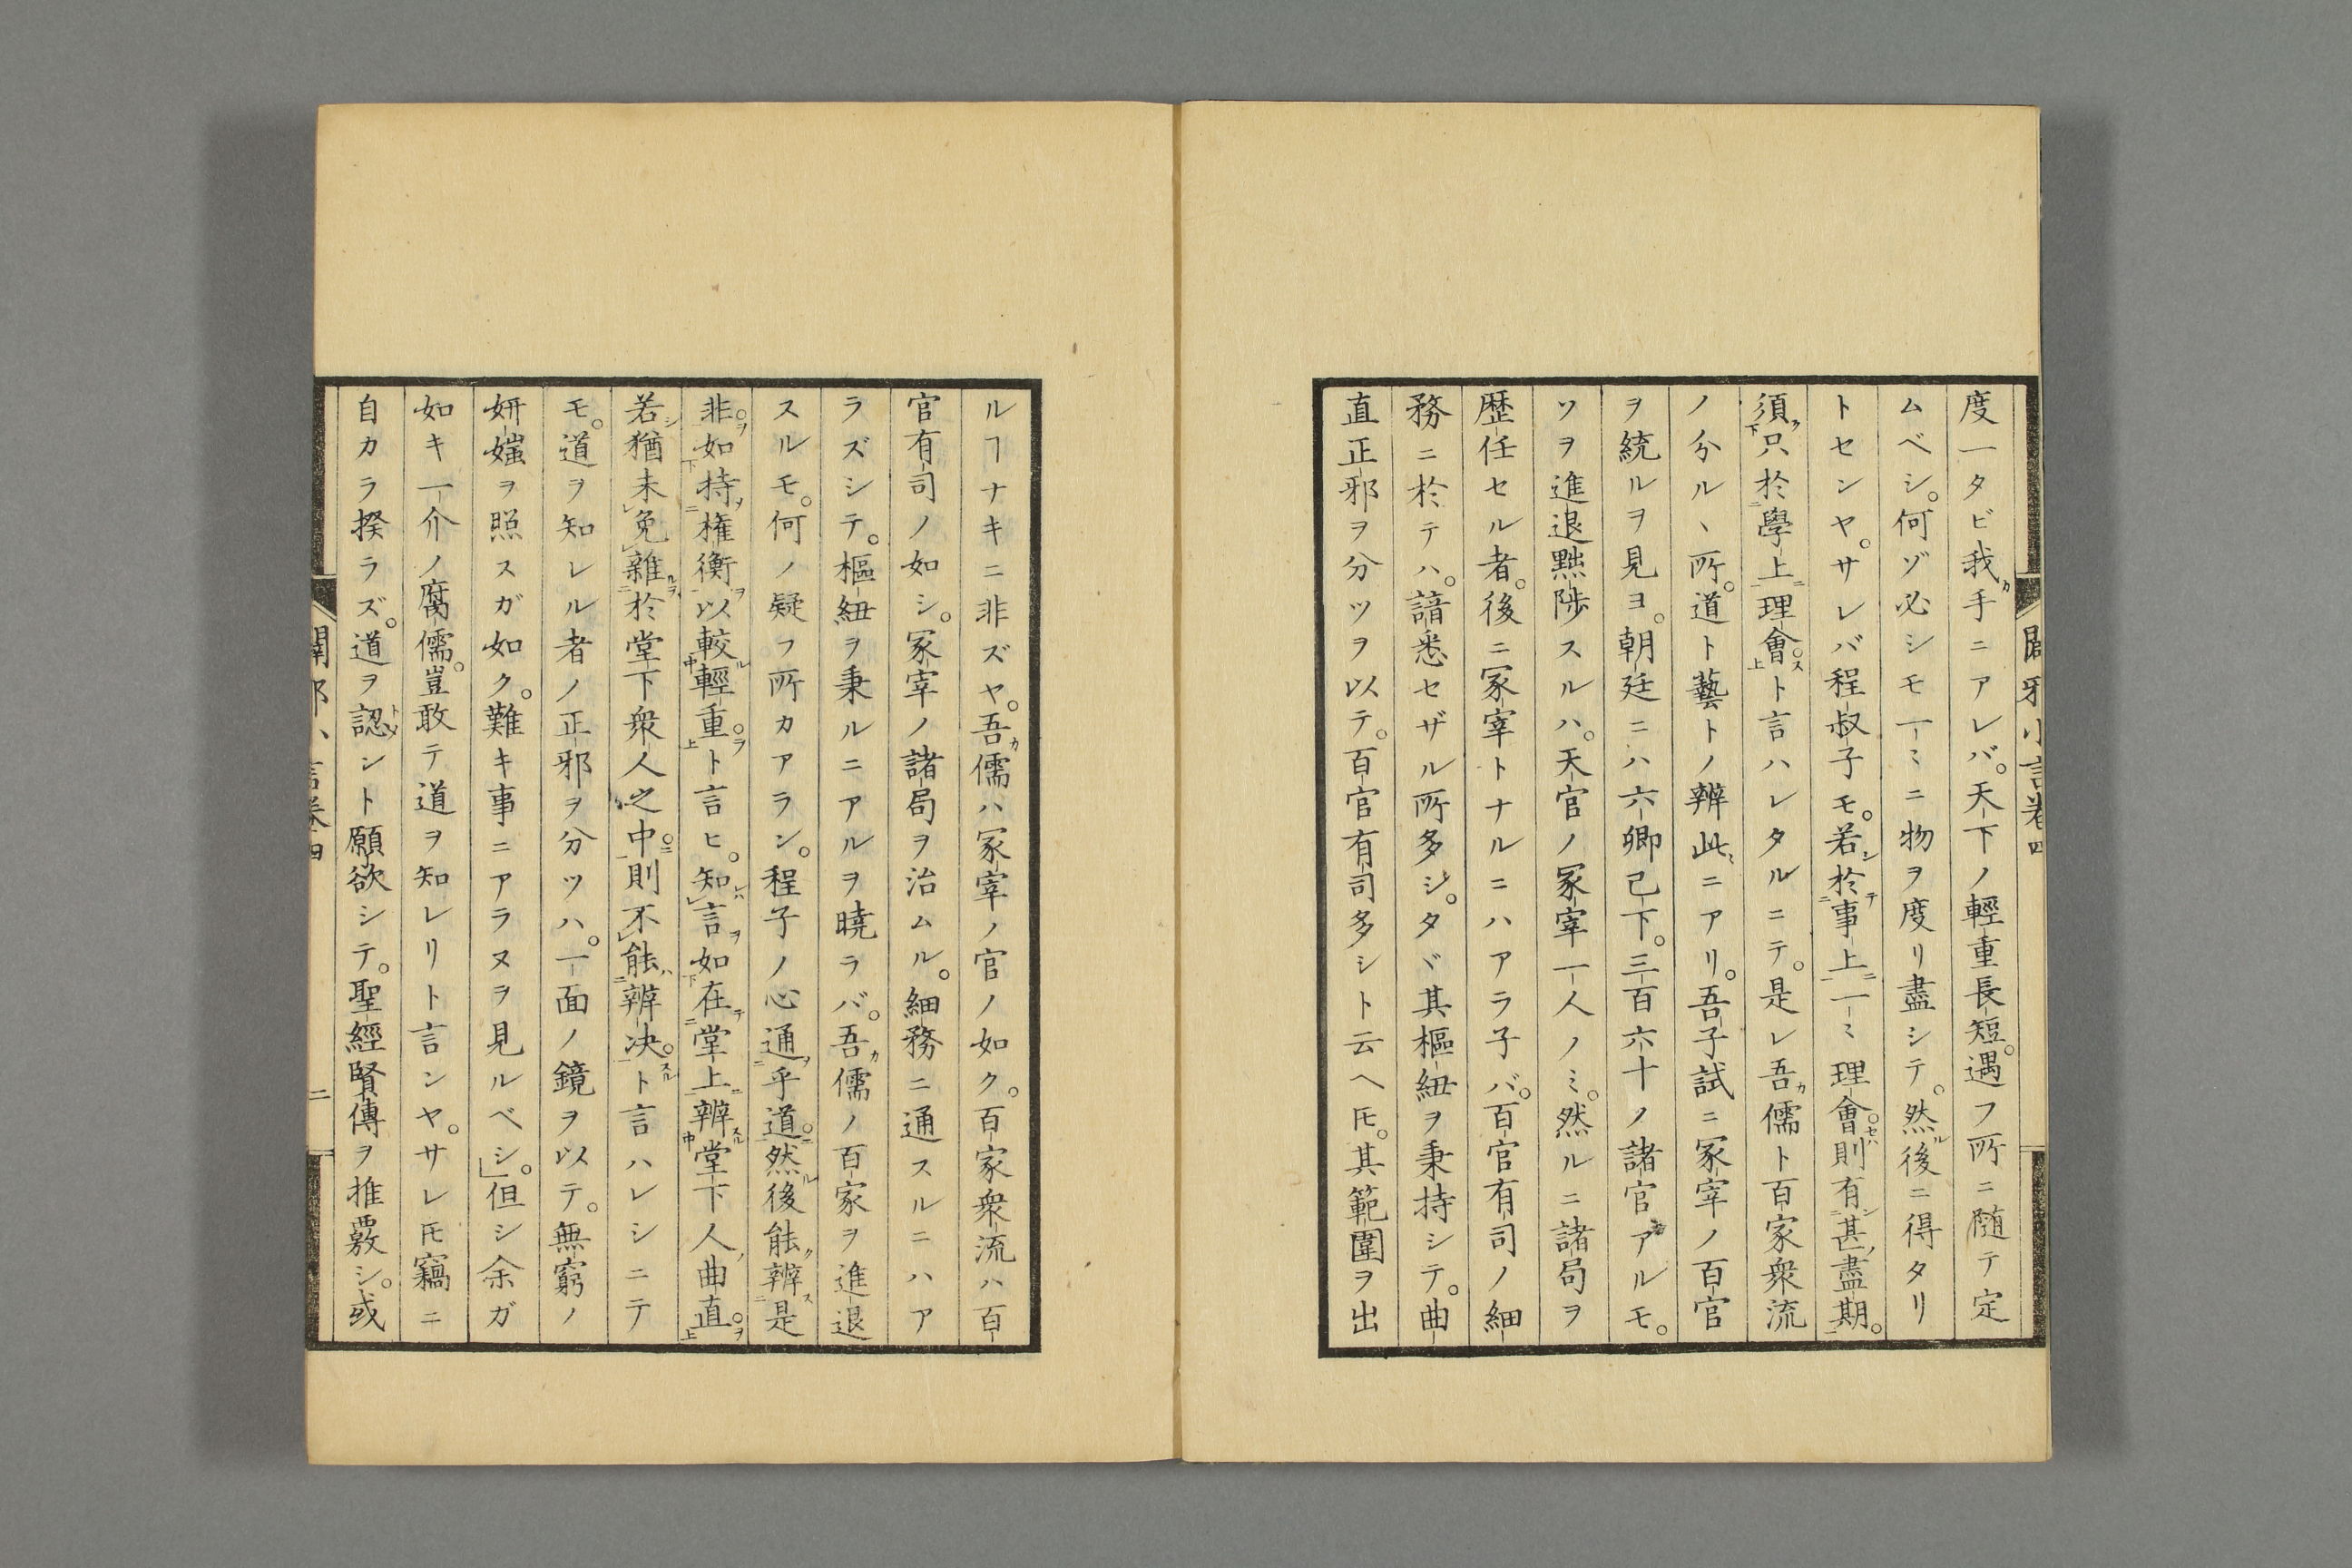 闢邪小言卷四
度一タビ我カ手ニアレバ。天下ノ輕重長短。遇フ所ニ随テ定
ムベシ。何ゾ必シモ一〻ニ物ヲ度リ盡シテ。然ル後ニ得タリ
トセンヤ。サレバ程叔子モ。若シ於テ事上ニ一〻理會セハ則有ン甚ノ盡期。
須ク只於學上ニ理會スト言ハレタルニテ。是レ吾カ儒ト百家衆流
ノ分ルヽ所。道ト藝トノ辨此ニアリ。吾子試ニ冢宰ノ百官
ヲ統ルヲ見ヨ。朝廷ニハ六卿已下。三百六十ノ諸官アルモ。
ソヲ進退黜陟スルハ。天官ノ冢宰一人ノミ。然ルニ諸局ヲ
歴任セル者。後ニ冢宰トナルニハアラ子バ。百官有司ノ細
務ニ於テハ。諳悉セザル所多シ。タヾ其樞紐ヲ秉持シテ。曲
直正邪ヲ分ツヲ以テ。百官有司多シト云ヘ𪜈。其範圍ヲ出
ルヿナキニ非ズヤ。吾カ儒ハ冢宰ノ官ノ如ク。百家衆流ハ百
官有司ノ如シ。冢宰ノ諸局ヲ治ムル。細務ニ通スルニハア
ラズシテ。樞紐ヲ秉ルニアルヲ曉ラバ。吾カ儒ノ百家ヲ進退
スルモ。何ノ疑フ所カアラン。程子ノ心通乎道ニ然ル後能ク辨ス是
非ヲ如持テ權衡ヲ以較ル輕重ヲト言ヒ。知レハ言ヲ如在テ堂上ニ辨スル堂下人ノ曲直ヲ
若シ猶未免雜ルヲ於堂下衆人之中ニ則不能ハ辨决スルト言ハレシニテ
モ。道ヲ知レル者ノ正邪ヲ分ツハ。一面ノ鏡ヲ以テ。無窮ノ
妍媸ヲ照スガ如ク。難キ事ニアラヌヲ見ルベシ。」但シ余ガ
如キ一介ノ腐儒。豈敢テ道ヲ知レリト言ンヤ。サレ𪜈竊ニ
自カラ揆ラズ。道ヲ認トメント願欲シテ。聖經賢傳ヲ推覈シ。或
闢邪小言卷四
二